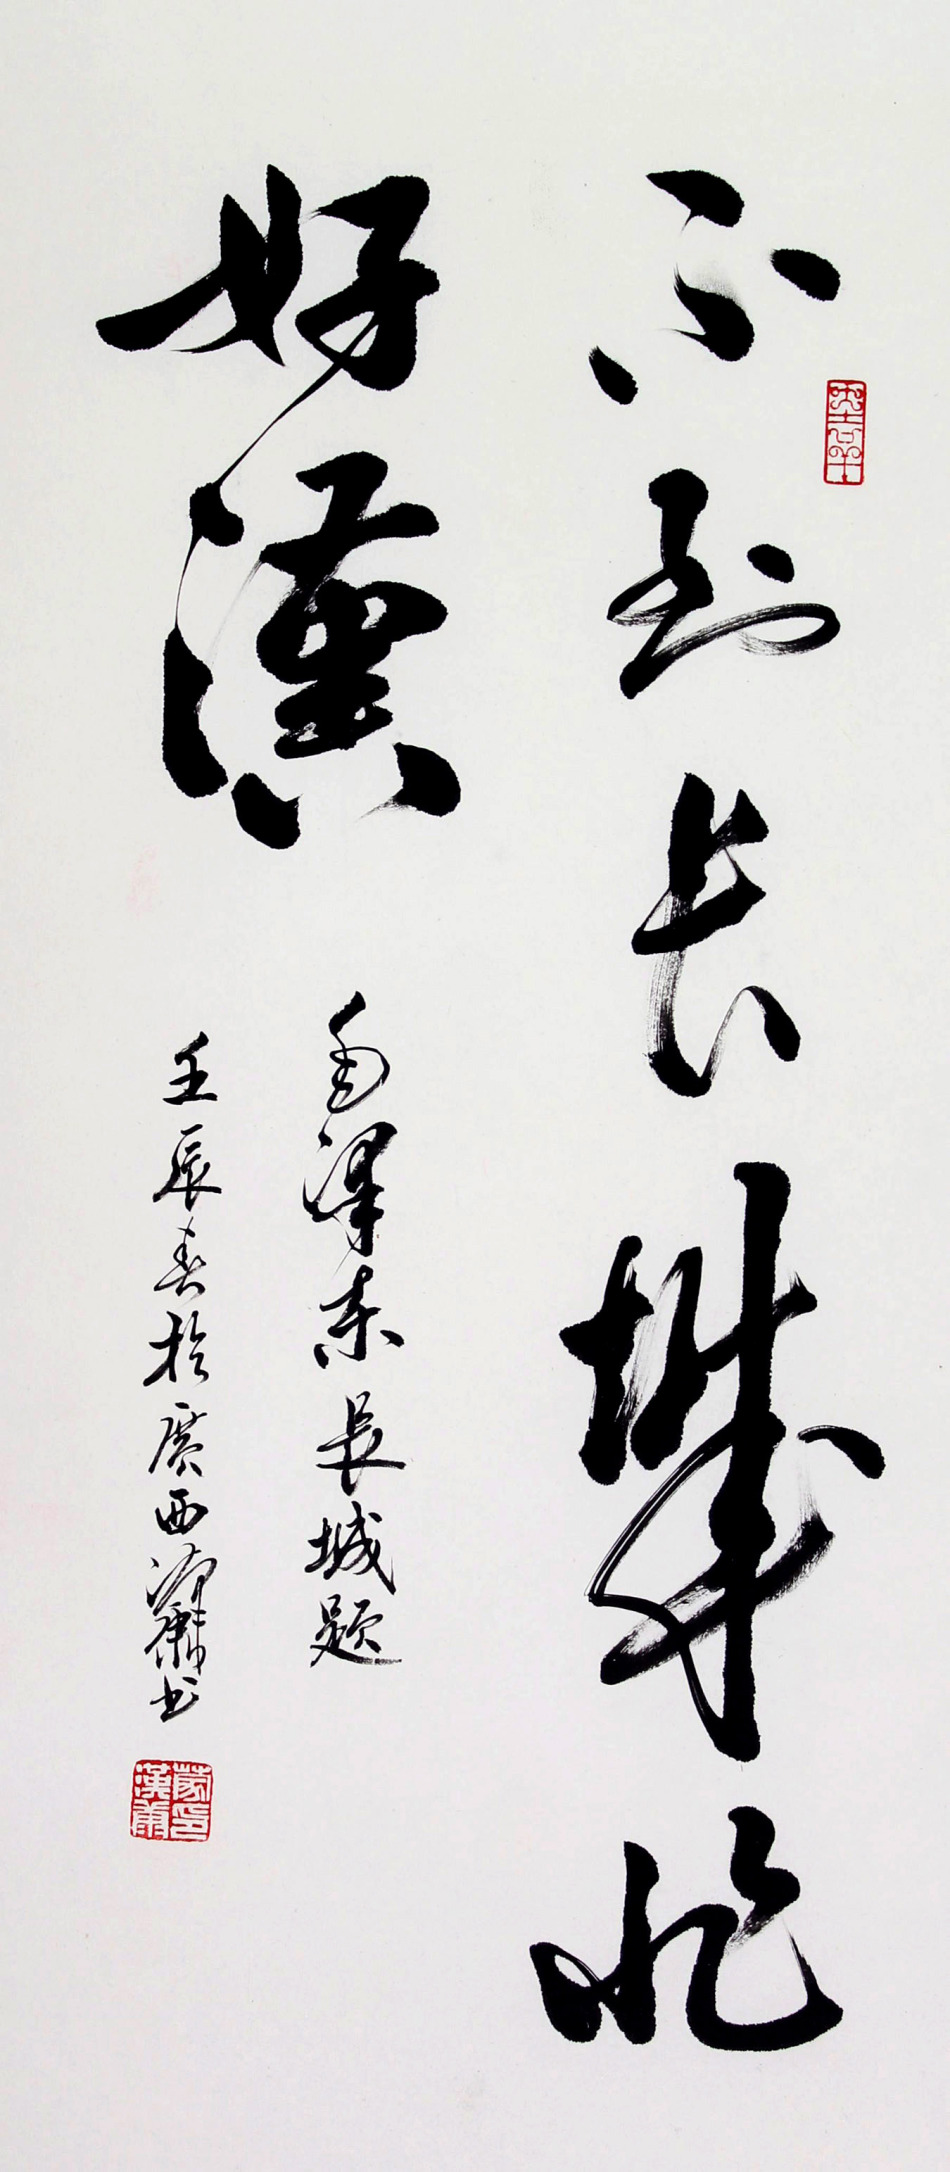 不到长城非
好漢
毛澤東長城题
壬辰春於廣西
书